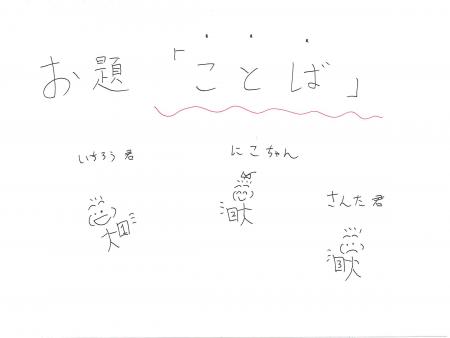 お題「ことば」
いちろう君
にこちゃん
さんた君
1
2
3